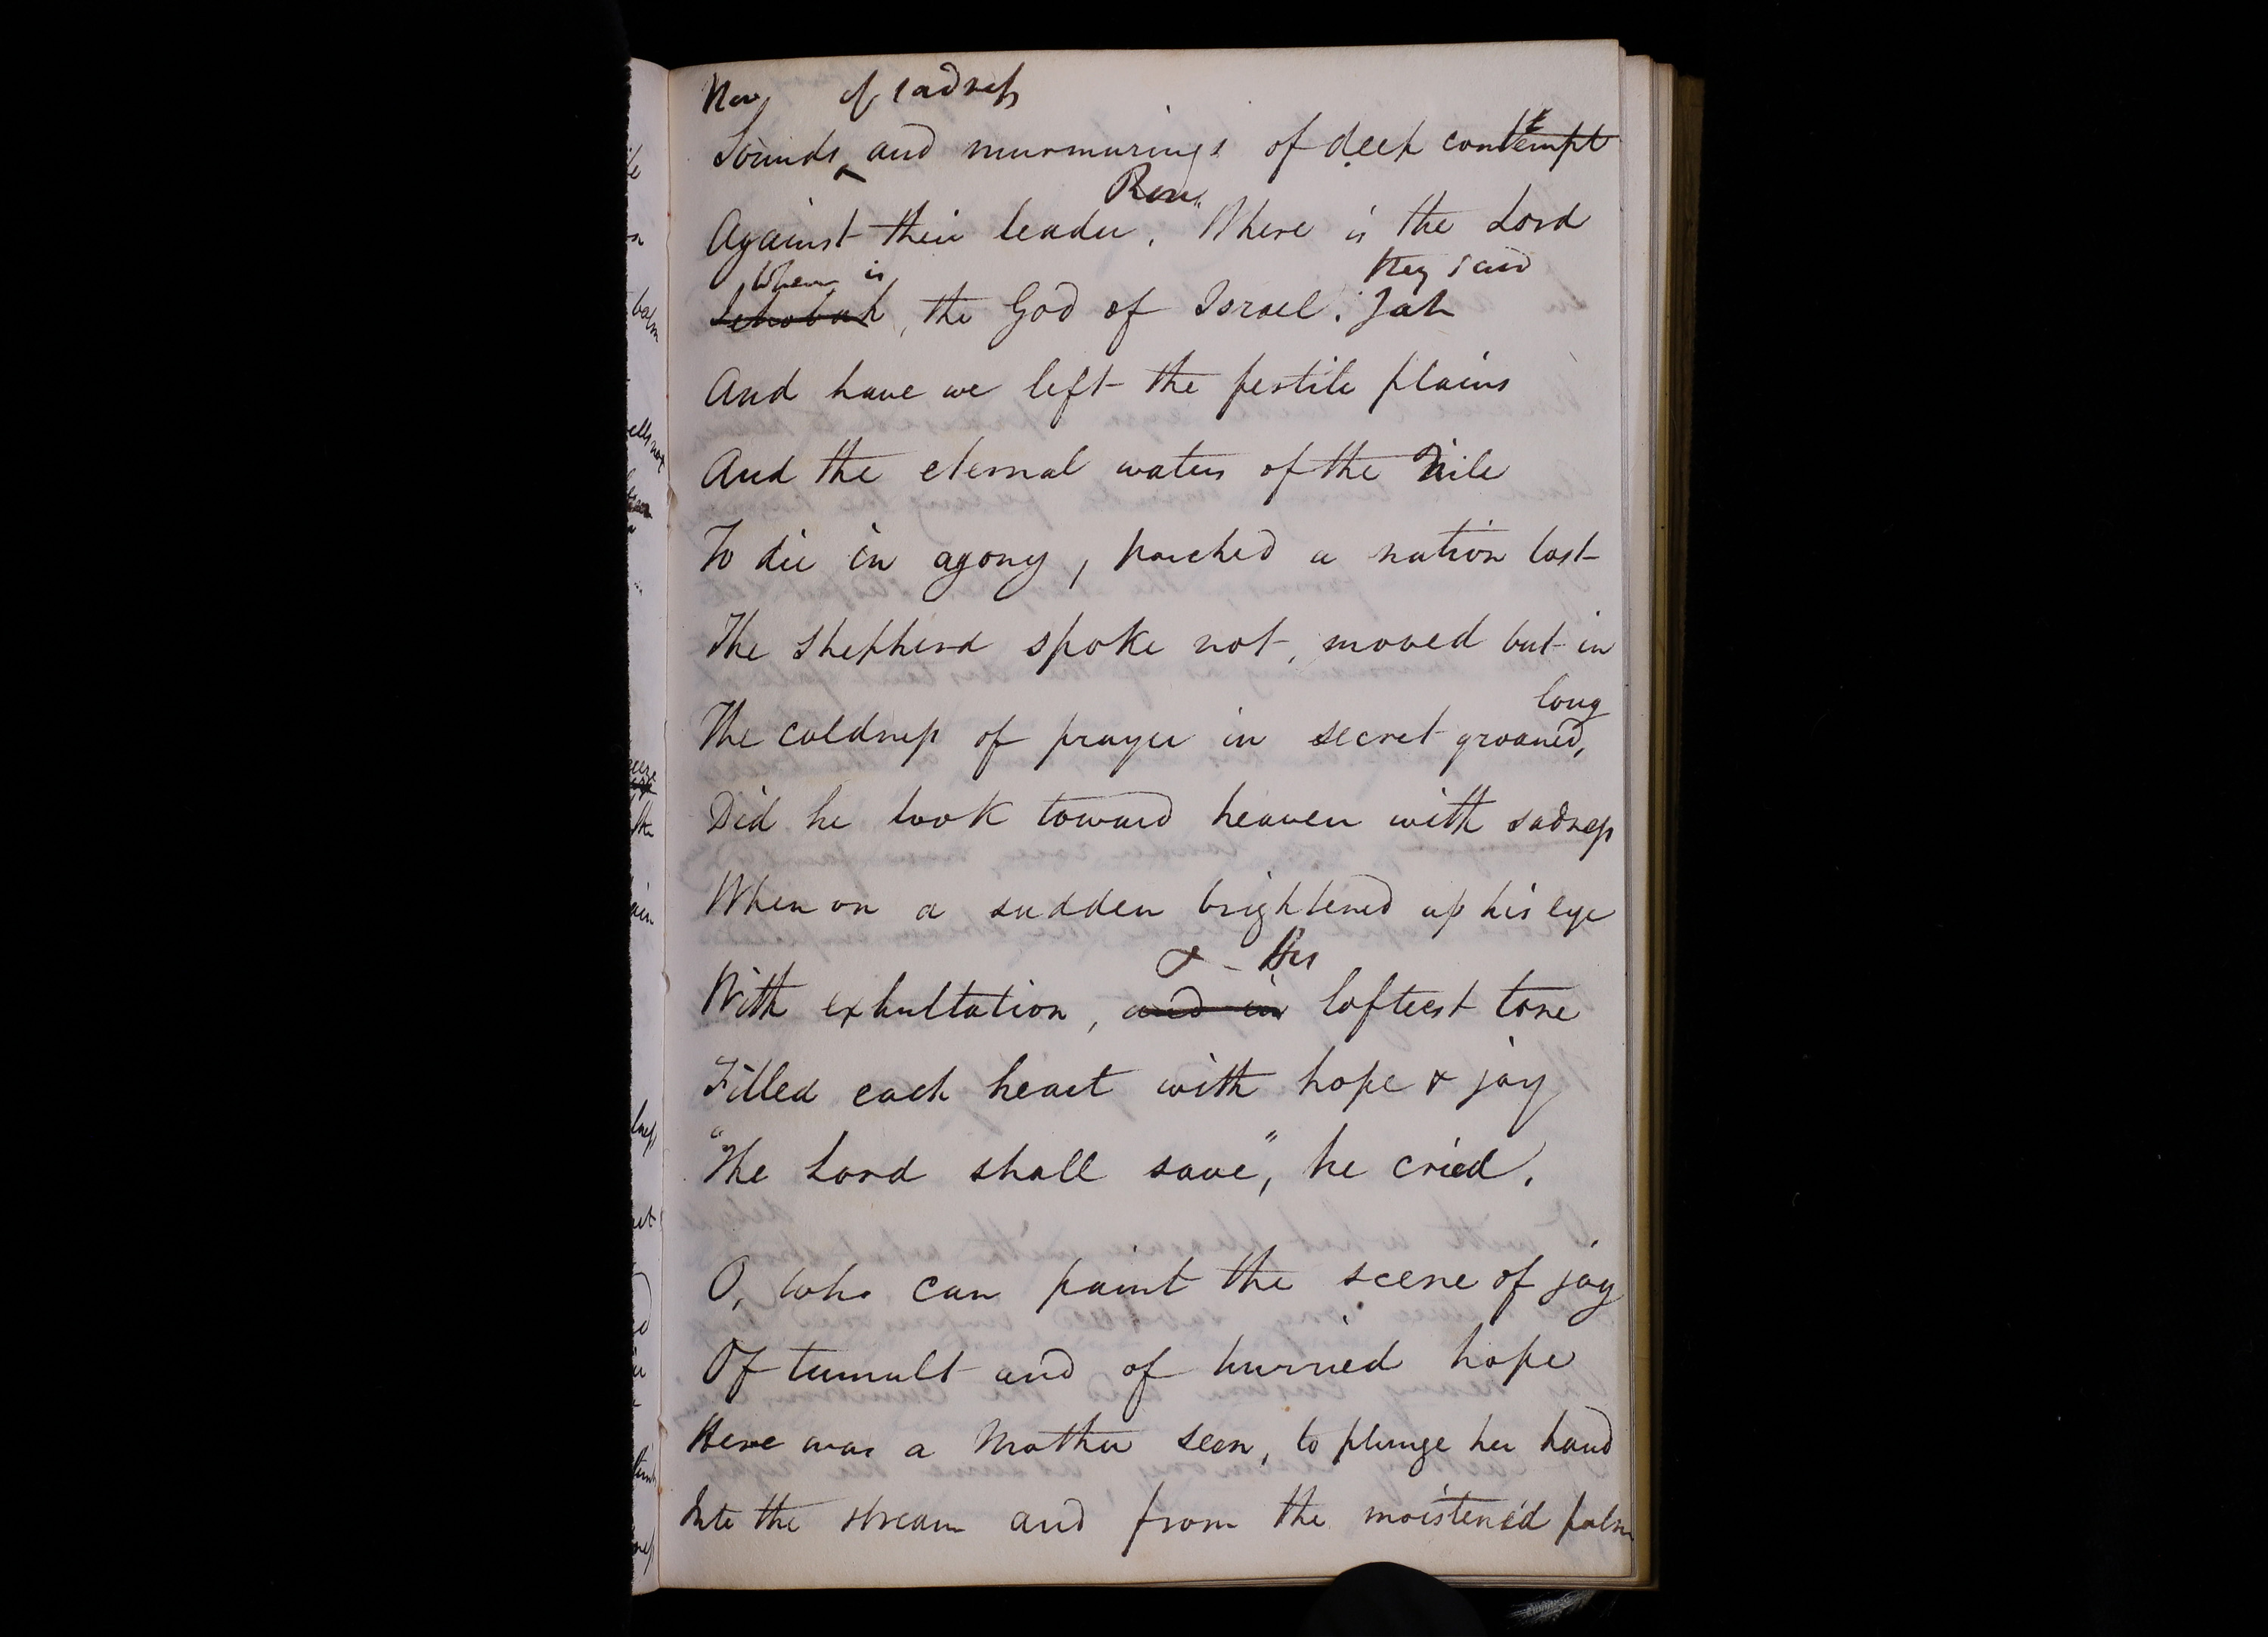 Now of sadness
Sounds and murmurings of deep contempt
Rose
Against their leader. "Where is the Lord
Where is they said
Jehovah, the God of Israel. Jah
And have we left the fertile plains
And the eternal waters of the Nile
To die in agony, parched a nation lost
The shepherd spoke not, moved but in
long
The coldness of prayer in secret groaned,
Did he look toward heaven with sadness
When on a sudden brightened up his eye
& - His
With exhultation, and in loftiest tone
Filled each heart with hope & joy
"The Lord shall save", he cried.
O, who can paint the scene of joy
Of tumult and of hurried hope
Here was a Mother seen, to plunge her hand
Into the stream and from the moisten'd palm